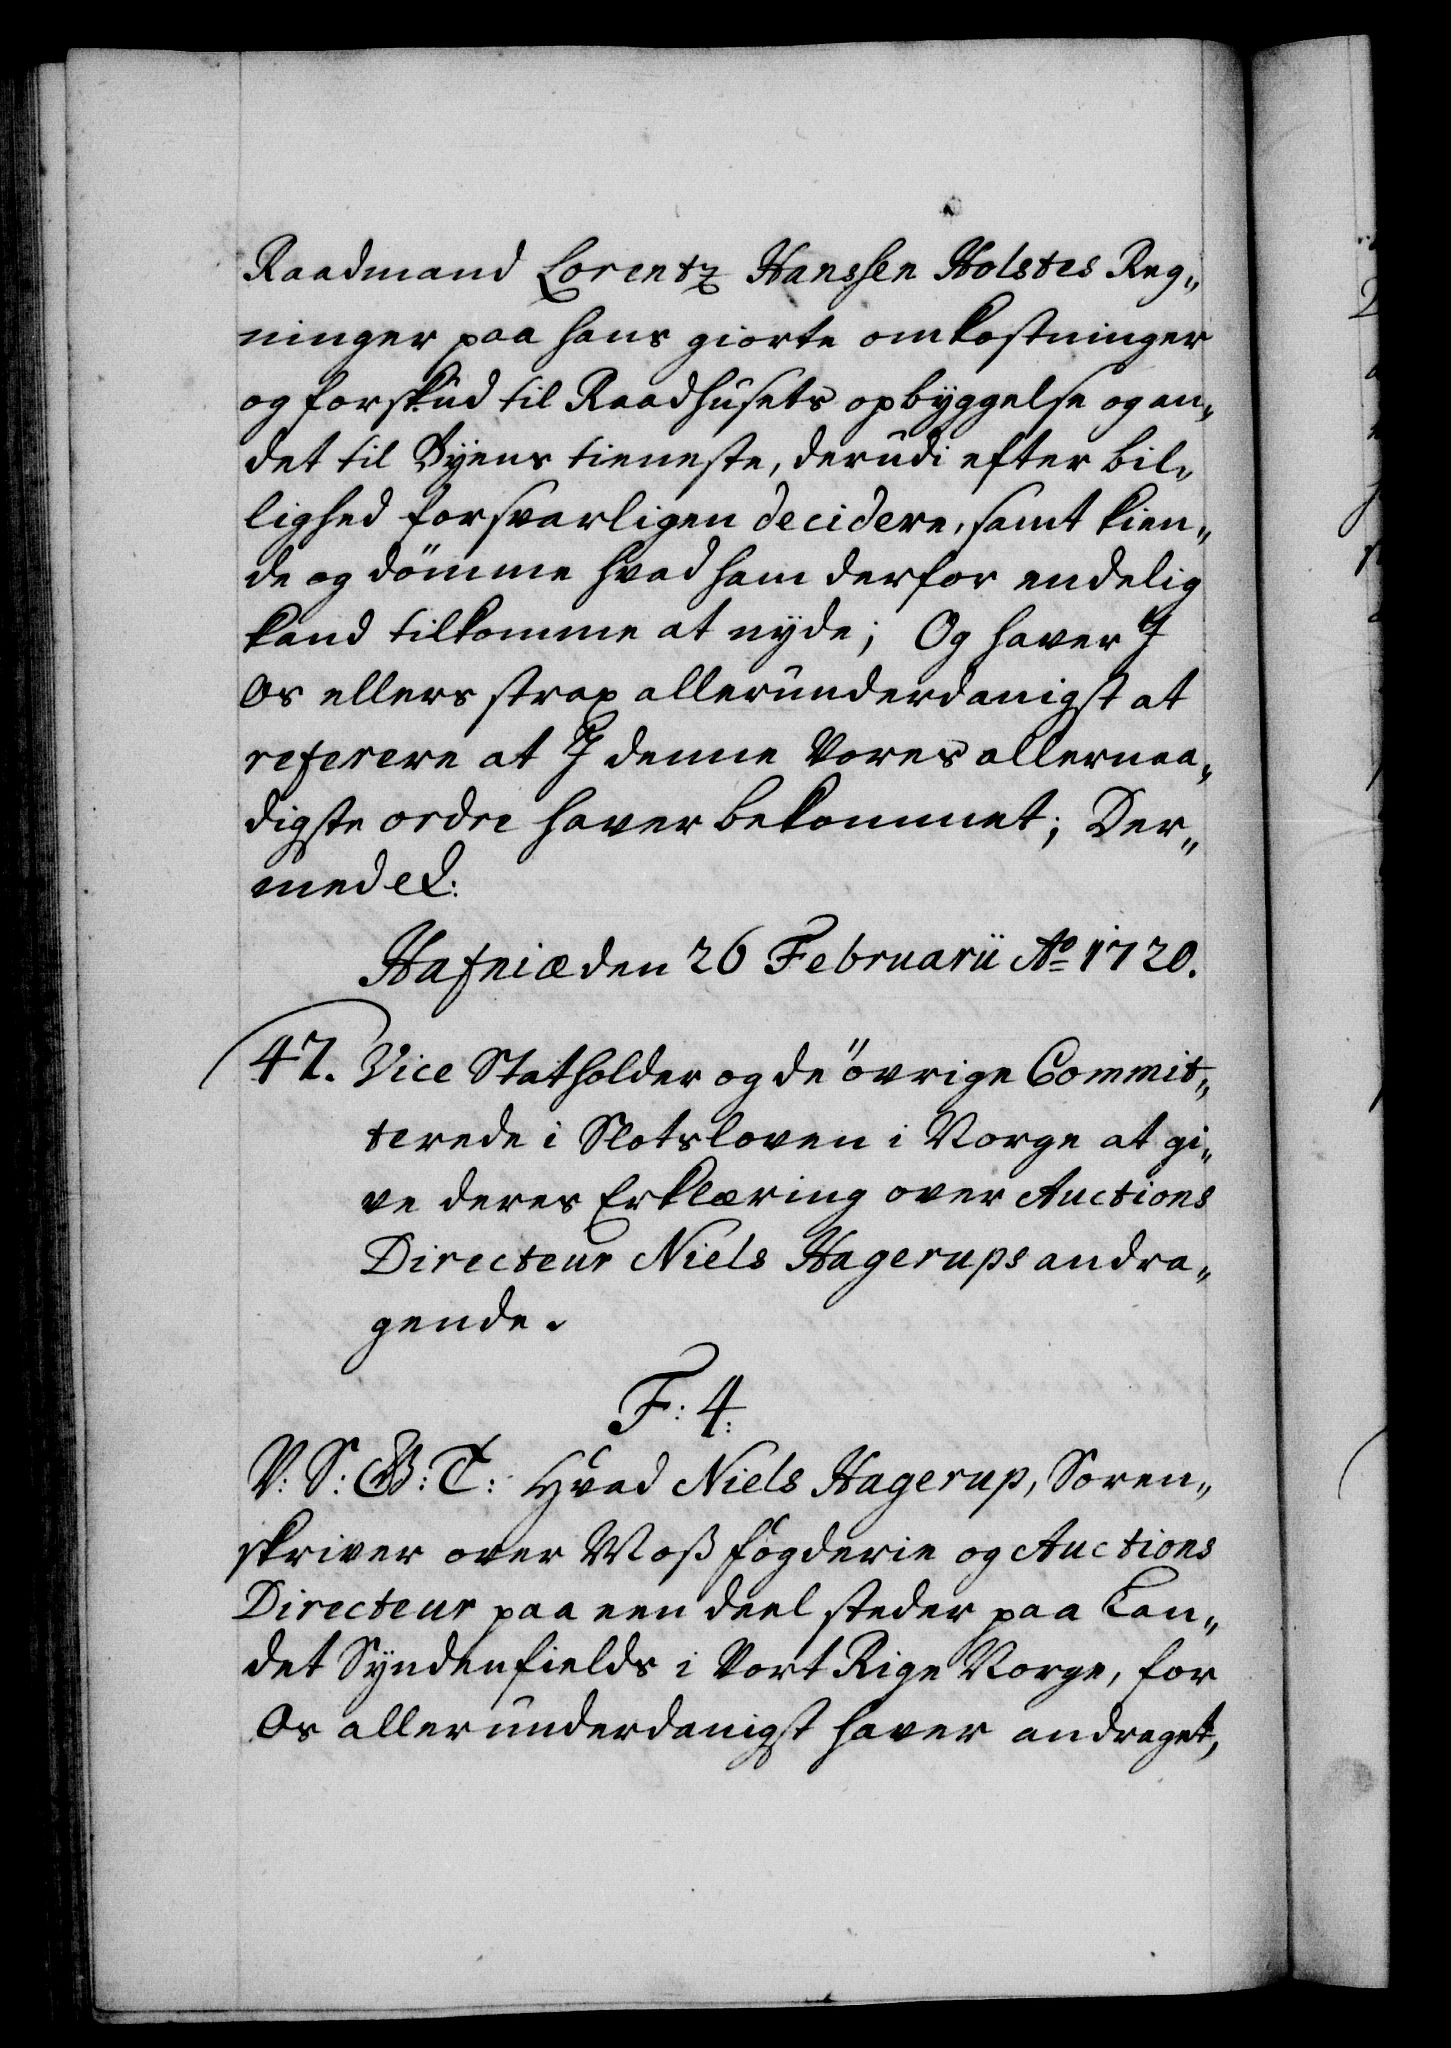 Raadmand Lorentz Hanssen Holstes Reg„
ninger paa hans giorte omkostninger
og forskud til Raadhusets opbyggelse og an„
det til Byens tieneste, derudi efter bil„
lighed forsvarligen decidere, samt kien„
de og dömme hvad ham derfor endelig
kand tilkomme at nyde; Og haver I
Os ellers strax allerunderdanigst at
referere at I denne Vores allernaa„
digste ordre haver bekommet; Der„
med ec:
Hafniæ den 26 Februarii Ao 1720.
47. Vice Statholder og de övrige Commit„
terede i Slotsloven i Norge at gi„
ve deres Erklæring over Auctions
Directeur Niels Hagerups andra„
gende.
F: 4.
V: S: G: T: Hvad Niels Hagerup, Soren„
skriver over Moss fogderie og Auctions
Directeur paa een deel steder paa Lan„
det Syndenfields i Vort Rige Norge, for
Os allerunderdanigst haver andraget,